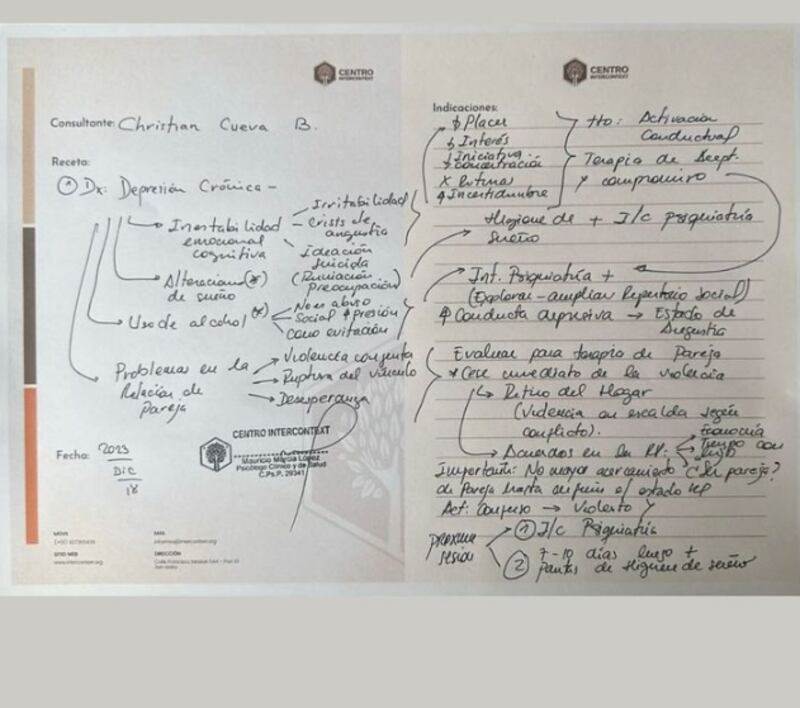 CENTRO
INTERCONTEXT
Consultante: Christian Cueva B.
Receta:
① Dx: Depresión Crónica -
Inestabilidad
emocional
cognitiva
Irritabilidad
Crisis de
angustia
Ideación
suicida
(Rumiación
Preocupación)
Alteracion (*)
de sueño
Uso de alcohol (*)
No es abuso
Social ↑ presión
como evitación
Problemas en la
Relación de
Pareja
Violencia conjunta
Ruptura del vínculo
Desesperanza
Fecha: 2023
DIC
18
CENTRO INTERCONTEXT
Mauricio Murcia López
Psicólogo Clínico y de Salud
C.Ps.P. 29341
MÓVIL
MAIL
SITIO WEB
www.intercontext.org
DIRECCIÓN
CENTRO
INTERCONTEXT
Indicaciones:
↓ Placer
↓ Interés
↓ Iniciativa
↓ concentración
X Rutina
↑ Incertidumbre
tto: Activación
Conductual
Terapia de Acept.
y compromiso
Higiene de + I/c psiquiatría
sueño
Int. Psiquiatría +
(Explorar - ampliar Repertorio Social)
↑ Conducta depresiva → Estado de
Angustia
Evaluar para terapia de Pareja
* Cese inmediato de la violencia
Retiro del Hogar
(Violencia en escalda según
conflicto).
Acuerdos en la RP:
Economía
Tiempo con
hijo
Important: No mayor acercamiento c su pareja?
de Pareja hasta definir el estado RP
Act: Confuso → Violento y
próxima
sesión
① I/c Psiquiatría
② 7-10 días luego +
pautas de Higiene de sueño